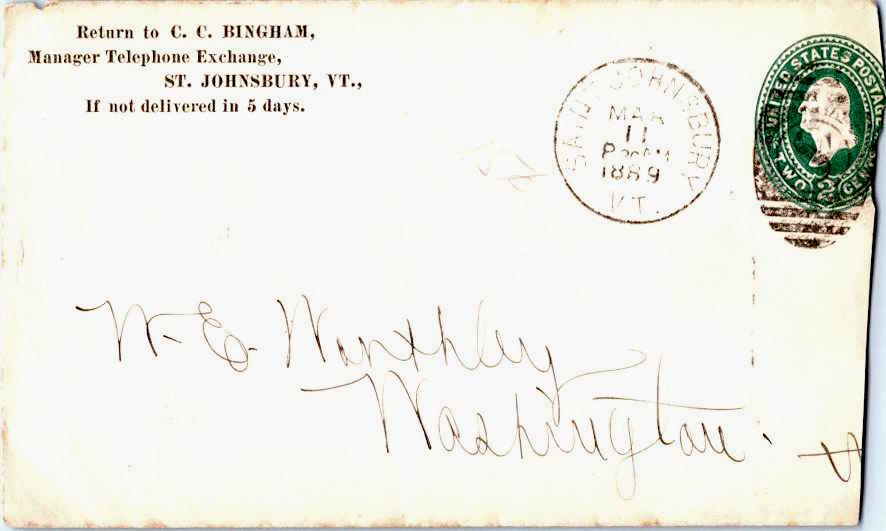 Return to C. C. BINGHAM,
Manager Telephone Exchange,
ST. JOHNSBURY, VT.,
If not delivered in 5 days.
SAINT JOHNSBURY
MAR
11
1889
VT.
UNITED STATES POSTAGE
TWO 2 CENTS
W. E. Worthley
Washington.